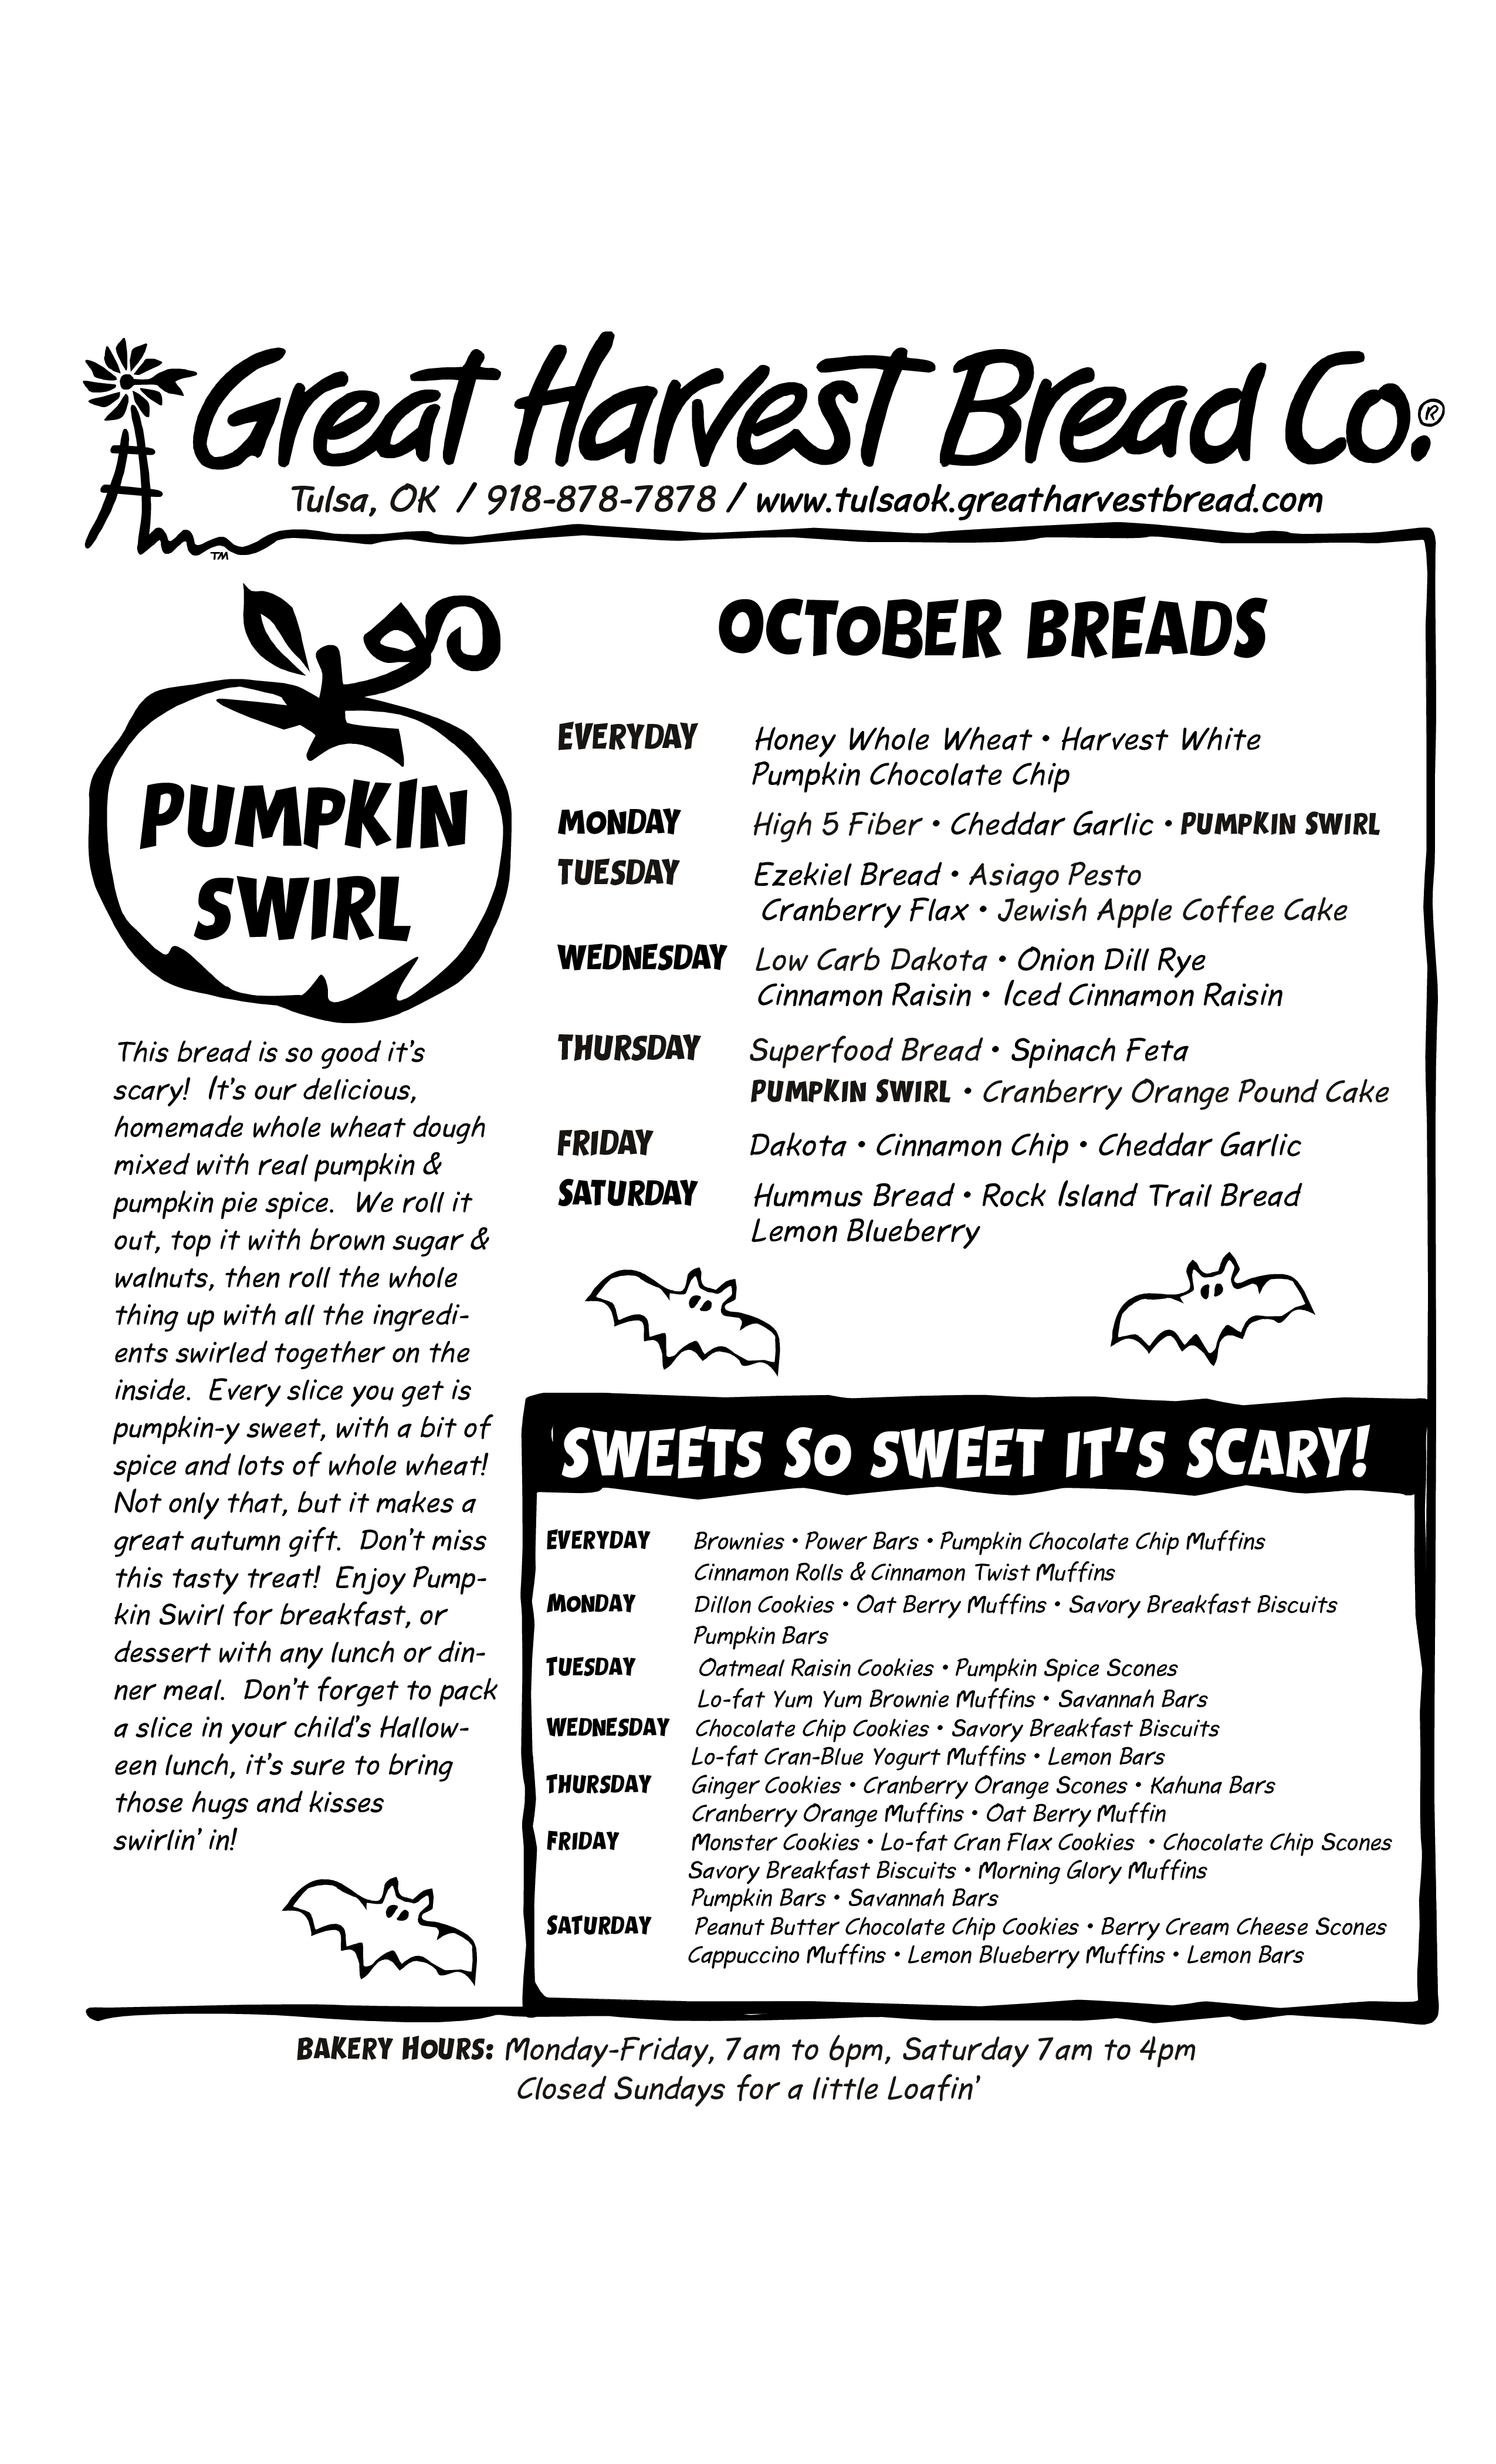 Great Harvest Bread Co.®
Tulsa, OK / 918-878-7878 / www.tulsaok.greatharvestbread.com
TM
PUMPKIN
SWIRL
This bread is so good it's
scary!  It's our delicious,
homemade whole wheat dough
mixed with real pumpkin &
pumpkin pie spice.  We roll it
out, top it with brown sugar &
walnuts, then roll the whole
thing up with all the ingredi-
ents swirled together on the
inside.  Every slice you get is
pumpkin-y sweet, with a bit of
spice and lots of whole wheat!
Not only that, but it makes a
great autumn gift.  Don't miss
this tasty treat!  Enjoy Pump-
kin Swirl for breakfast, or
dessert with any lunch or din-
ner meal.  Don't forget to pack
a slice in your child's Hallow-
een lunch, it's sure to bring
those hugs and kisses
swirlin' in!
OCTOBER BREADS
EVERYDAY Honey Whole Wheat • Harvest White
Pumpkin Chocolate Chip
MONDAY High 5 Fiber • Cheddar Garlic • PUMPKIN SWIRL
TUESDAY Ezekiel Bread • Asiago Pesto
Cranberry Flax • Jewish Apple Coffee Cake
WEDNESDAY Low Carb Dakota • Onion Dill Rye
Cinnamon Raisin • Iced Cinnamon Raisin
THURSDAY Superfood Bread • Spinach Feta
PUMPKIN SWIRL • Cranberry Orange Pound Cake
FRIDAY Dakota • Cinnamon Chip • Cheddar Garlic
SATURDAY Hummus Bread • Rock Island Trail Bread
Lemon Blueberry
SWEETS SO SWEET IT'S SCARY!
EVERYDAY Brownies • Power Bars • Pumpkin Chocolate Chip Muffins
Cinnamon Rolls & Cinnamon Twist Muffins
MONDAY Dillon Cookies • Oat Berry Muffins • Savory Breakfast Biscuits
Pumpkin Bars
TUESDAY Oatmeal Raisin Cookies • Pumpkin Spice Scones
Lo-fat Yum Yum Brownie Muffins • Savannah Bars
WEDNESDAY Chocolate Chip Cookies • Savory Breakfast Biscuits
Lo-fat Cran-Blue Yogurt Muffins • Lemon Bars
THURSDAY Ginger Cookies • Cranberry Orange Scones • Kahuna Bars
Cranberry Orange Muffins • Oat Berry Muffin
FRIDAY Monster Cookies • Lo-fat Cran Flax Cookies • Chocolate Chip Scones
Savory Breakfast Biscuits • Morning Glory Muffins
Pumpkin Bars • Savannah Bars
SATURDAY Peanut Butter Chocolate Chip Cookies • Berry Cream Cheese Scones
Cappuccino Muffins • Lemon Blueberry Muffins • Lemon Bars
BAKERY HOURS: Monday-Friday, 7am to 6pm, Saturday 7am to 4pm
Closed Sundays for a little Loafin'